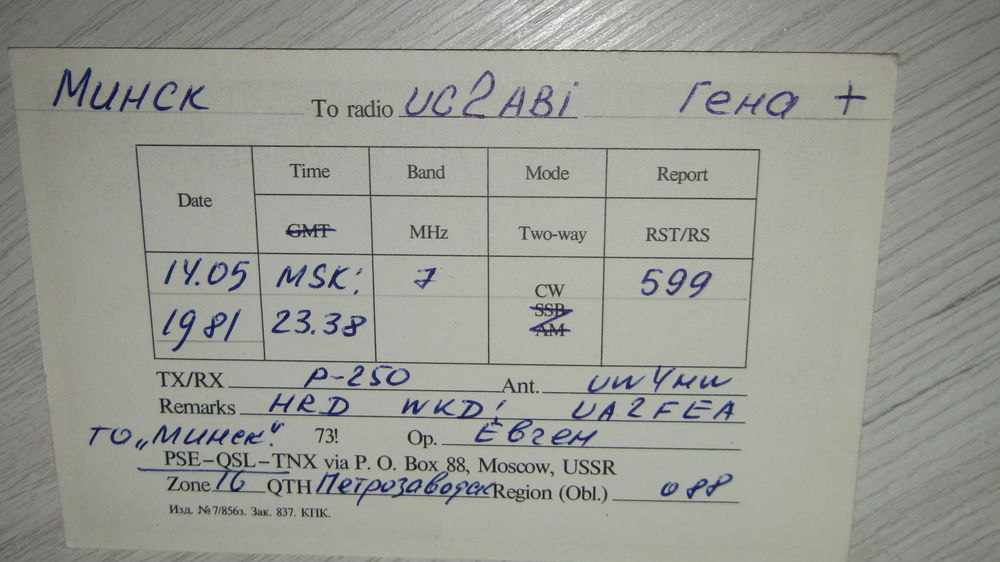 Минск To radio UC2ABI Гена +
Date Time Band Mode Report
GMT MHz Two-way RST/RS
14.05 MSK: 7 CW 599
SSB
1981 23.38 AM
TX/RX P-250 Ant. UW4HW
Remarks HRD WKD: UA2FEA
TO „Минск“. 73! Op. Евген
PSE–QSL–TNX via P. O. Box 88, Moscow, USSR
Zone 16 QTH Петрозаводск Region (Obl.) 088
Изд. №7/856з. Зак. 837. КПК.